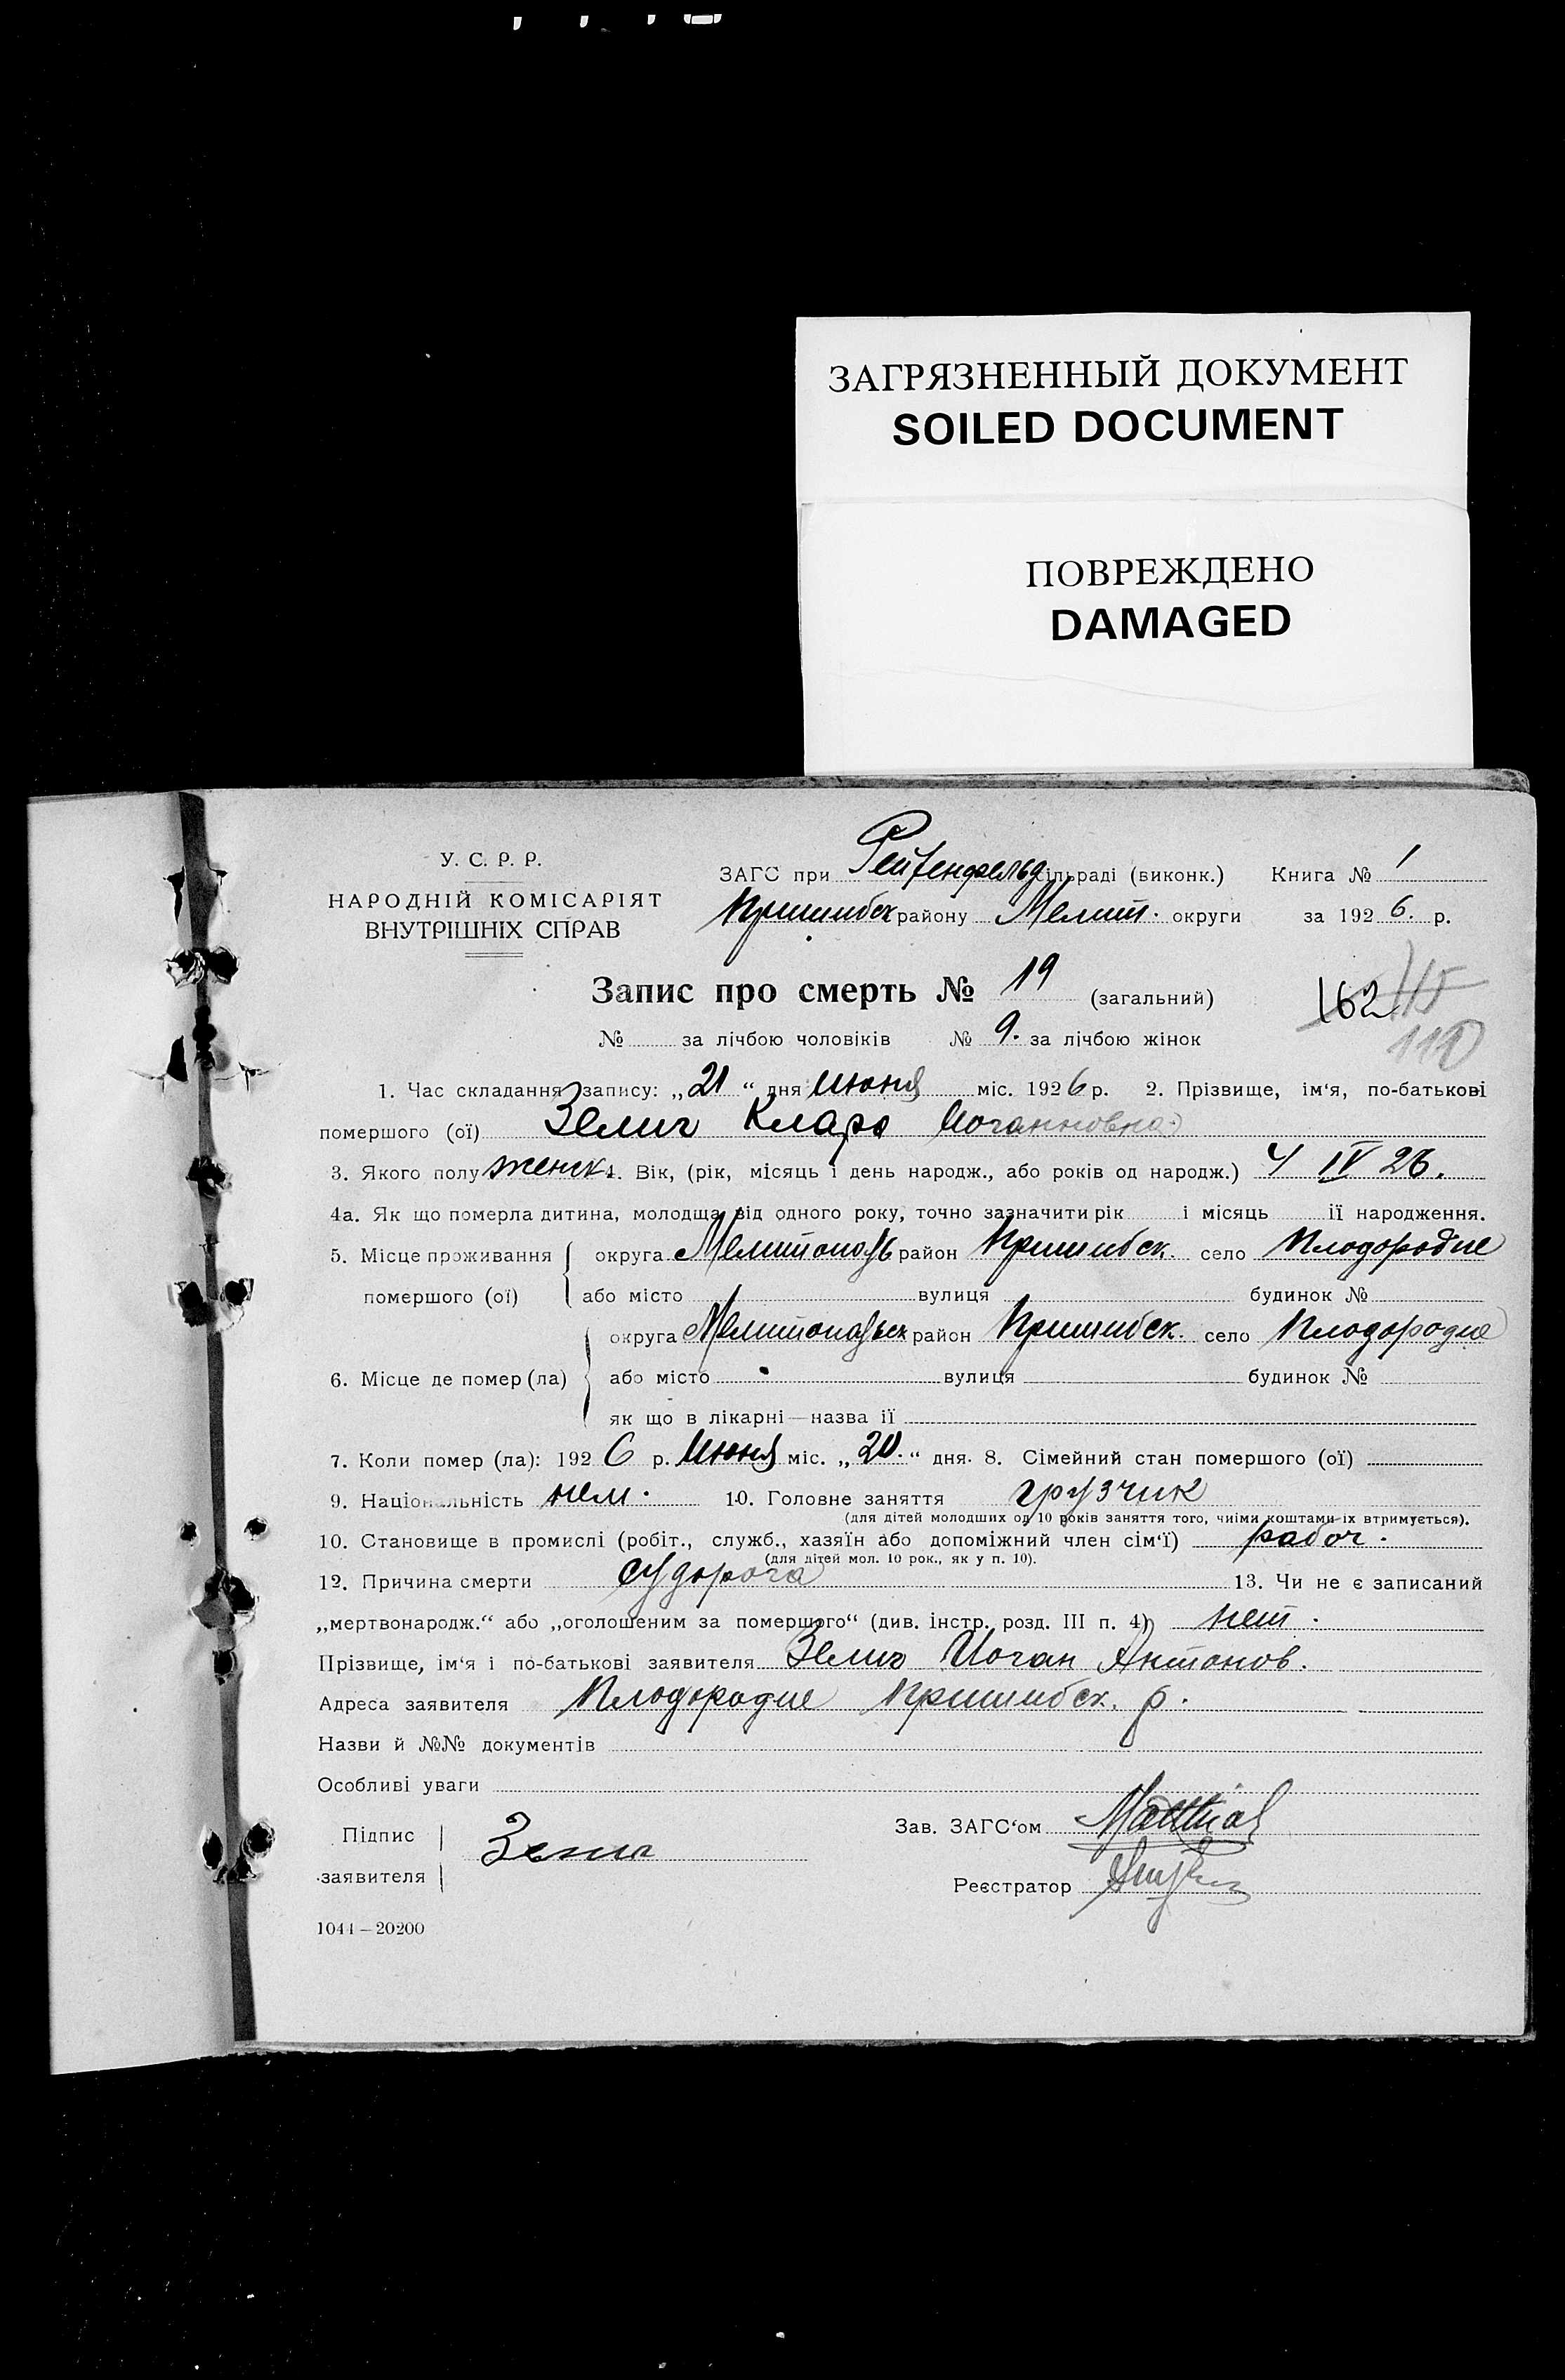 ЗАГРЯЗНЕННЫЙ ДОКУМЕНТ
SOILED DOCUMENT
ПОВРЕЖДЕНО
DAMAGED
У. С. Р. Р.
НАРОДНІЙ КОМІСАРІЯТ
ВНУТРІШНІХ СПРАВ
ЗАГС при Рейхенфельд сільраді (виконк.) Книга № 1
Пришибск району Мелит. округи за 1926. р.
Запис про смерть № 19 (загальний)
162 115
110
№ за лічбою чоловіків № 9. за лічбою жінок
1. Час складання запису: „21“ дня июня міс. 1926 р. 2. Прізвище, ім‘я, по-батькові
помершого (ої) Зелич Клара Иоганновна
3. Якого полу женск. 4. Вік, (рік, місяць і день народж., або років од народж.) 4 IV 26.
4а. Як що померла дитина, молодща від одного року, точно зазначити рік і місяць її народження.
5. Місце проживання округа Мелитополь район Пришибск. село Плодородие
помершого (ої) або місто вулиця будинок №
округа Мелитопольск район Пришибск. село Плодородие
6. Місце де помер (ла) або місто вулиця будинок №
як що в лікарні—назва її
7. Коли помер (ла): 1926 р. Июня міс. „20.“ дня. 8. Сімейний стан помершого (ої)
9. Національність нем. 10. Головне заняття грузчик
(для дітей молодших од 10 років заняття того, чиїми коштами їх втримується).
10. Становище в промислі (робіт., служб., хазяїн або допоміжний член сім‘ї) рабоч.
(для дітей мол. 10 рок., як у п. 10).
12. Причина смерти судорога 13. Чи не є записаний
„мертвонародж.“ або „оголошеним за померщого“ (див. інстр. розд. III п. 4) нет.
Прізвище, ім‘я і по-батькові заявителя Зелич Иоган Антонов.
Адреса заявителя Плодородие Пришибск. р.
Назви й №№ документів
Особливі уваги
Підпис
заявителя Зелич
Зав. ЗАГС‘ом Matthias
Реєстратор
1044—20200